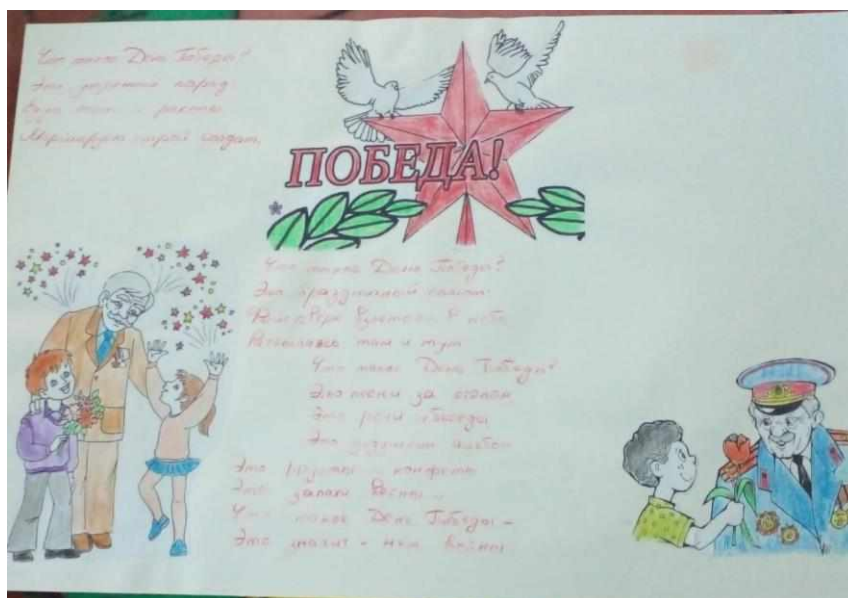 Что такое День Победы?
Это утренний парад:
Едут танки и ракеты,
Марширует строй солдат.
ПОБЕДА!
Что такое День Победы?
Это праздничный салют:
Фейерверк взлетает в небо
Рассыпаясь там и тут
Что такое День Победы?
Это песни за столом
Это речи и беседы
Это дедушкин альбом
Это фрукты и конфеты
Это запахи весны...
Что такое День Победы -
Это значит - нет войны